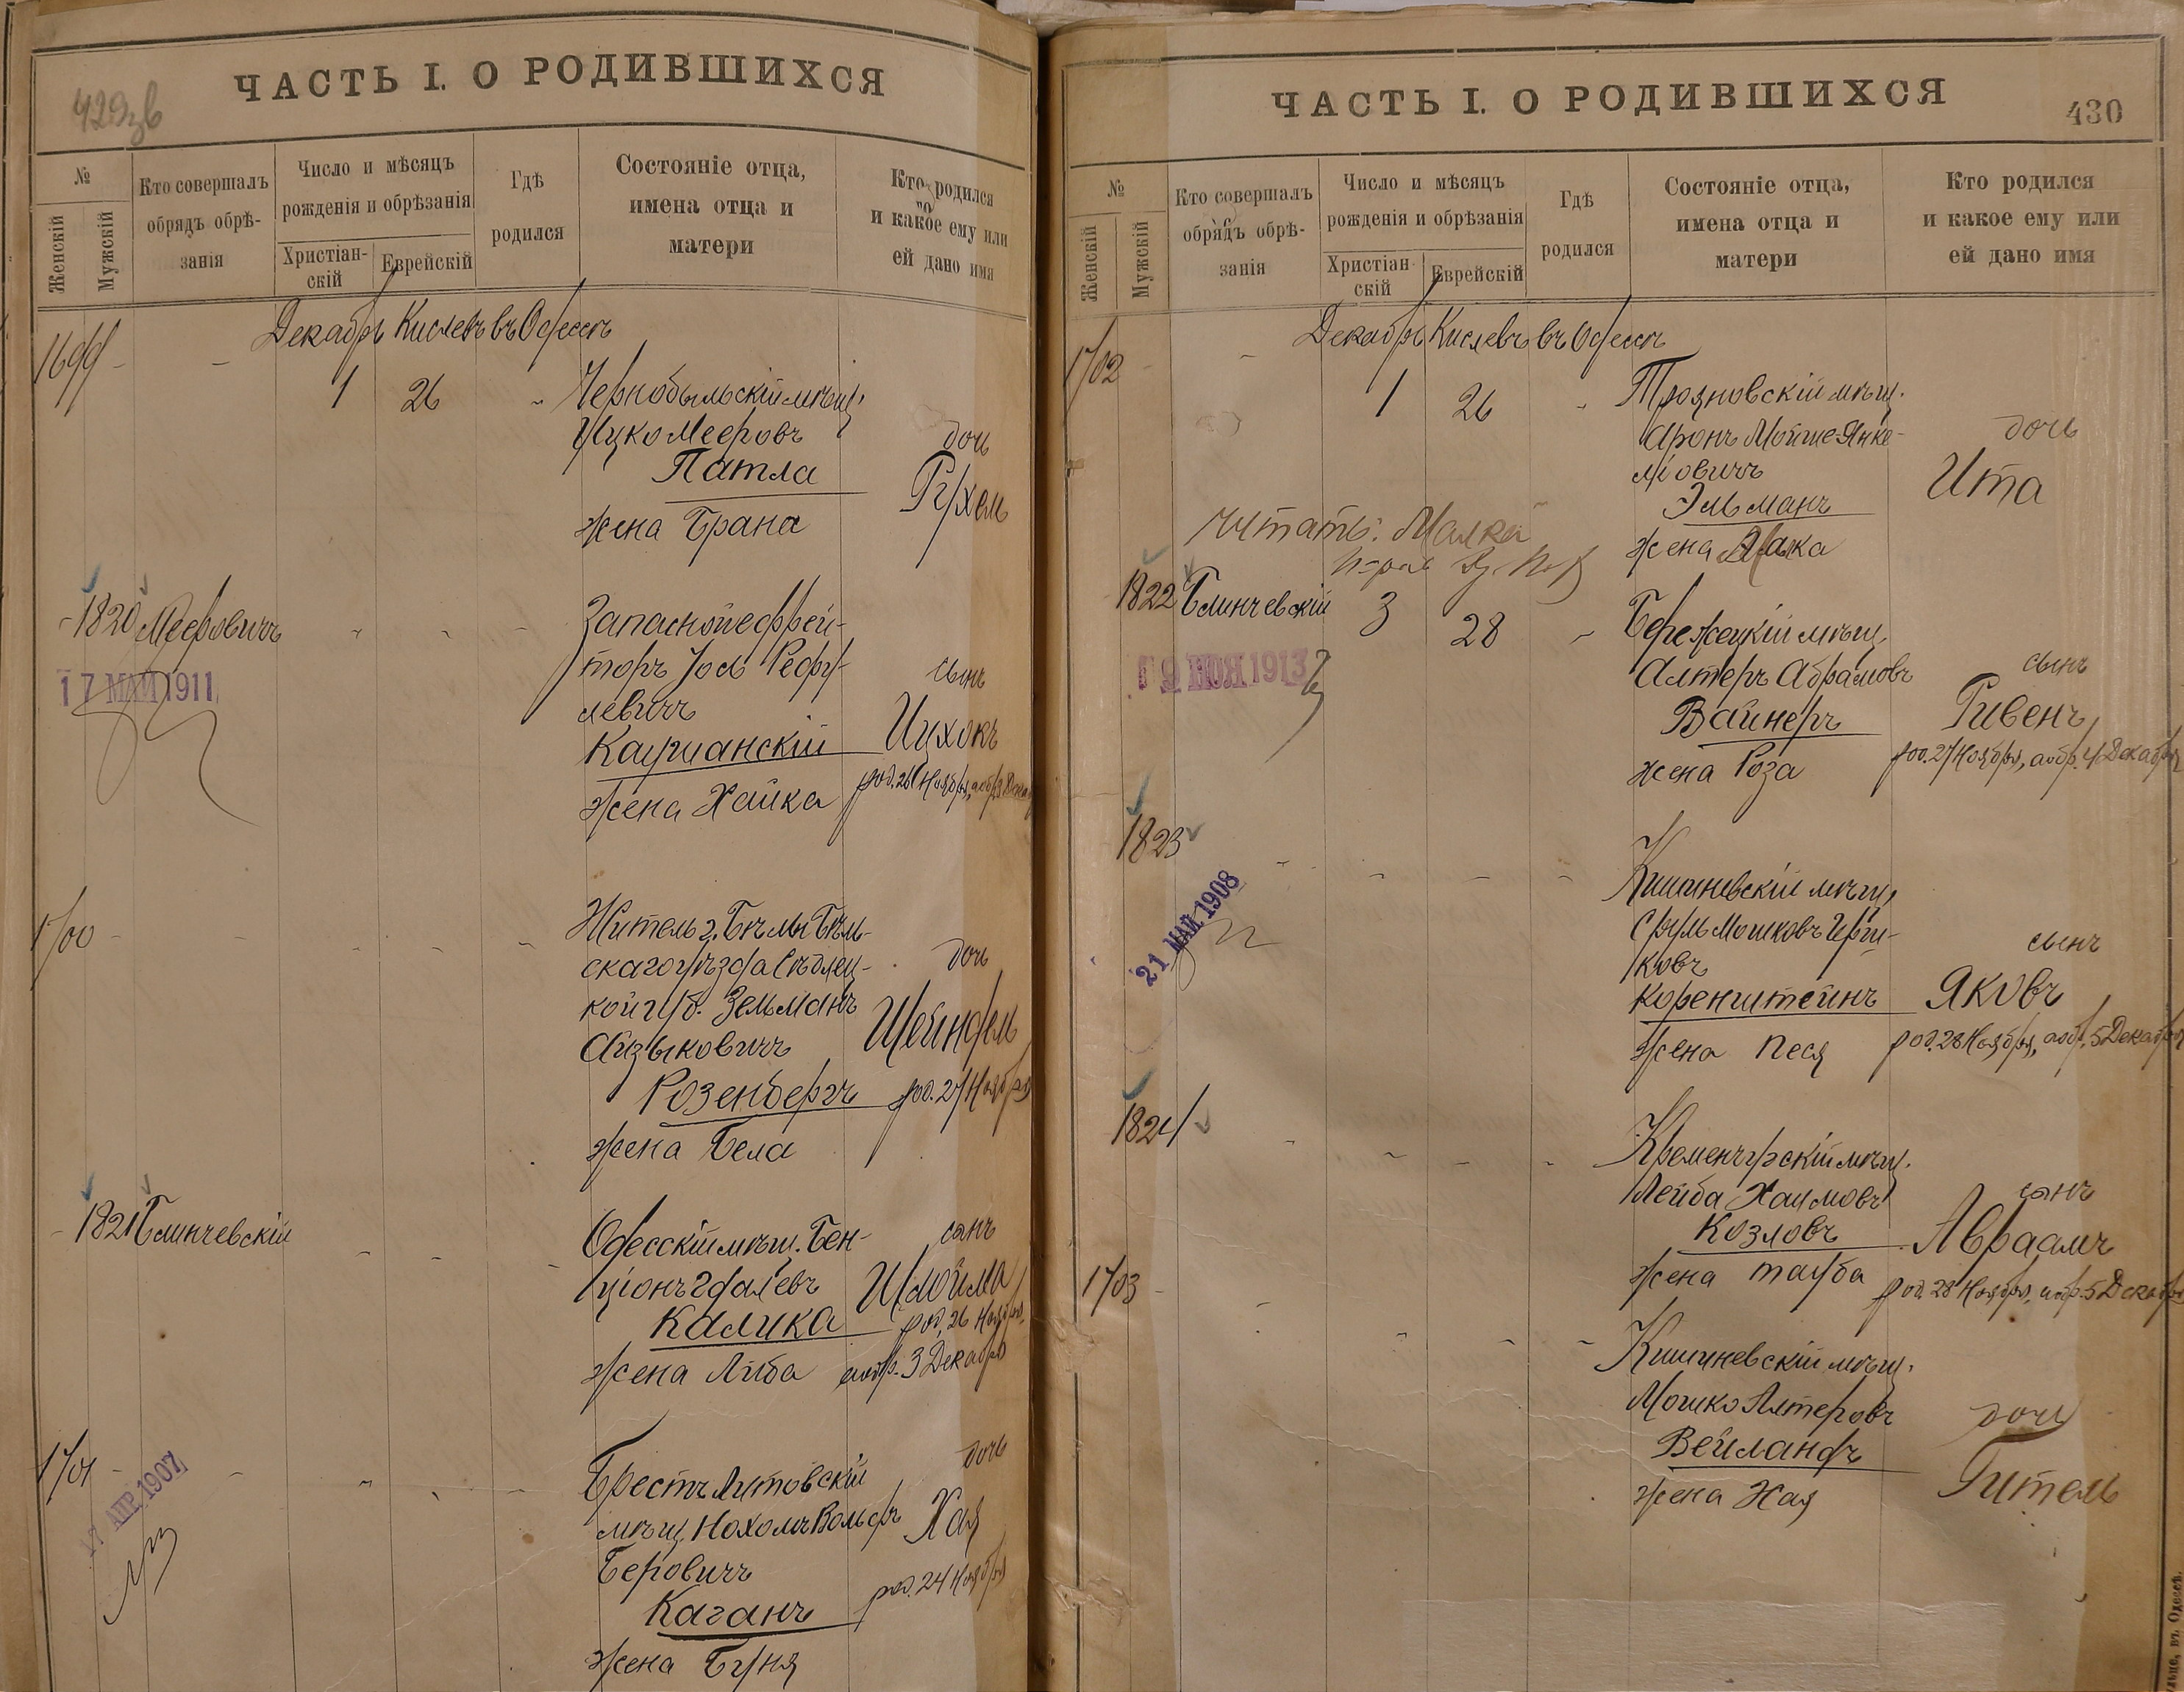 429 об
ЧАСТЬ I. О РОДИВШИХСЯ
№
Женскій
Мужскій
Кто совершалъ
обрядъ обрѣ-
занія
Число и мѣсяцъ
рожденія и обрѣзанія
Христіан-
скій
Еврейскій
Гдѣ
родился
Состояніе отца,
имена отца и
матери
Кто родился
и какое ему или
ей дано имя
Декабрь Кислевъ въ Одессѣ
1699
1 26
Чернобыльскій мѣщ.
Ицко Мееровъ
Патла
жена Брана
дочь
Рухель
1820 Мееровичъ
17 МАЙ 1911
Запасной ефрей-
торъ Іось
левичъ
Каушанскій
жена Хайка
сынъ
Ицхокъ
род. 26 Ноября, а обр. 3 Декаб
1700
Житель г. Бѣлы Бѣль-
скаго уѣзда Сѣдлец-
кой губ. Зельманъ
Айзыковичъ
Розенбергъ
жена Бела
дочь
Шейндель
род. 27 Ноября
1821 Блинчевскій
Одесскій мѣщ. Бен-
ціонъ Гдалевъ
Калика
жена Либа
сынъ
Шлойма
род. 26 Ноября,
а обр. 3 Декабря
1701
17 АПР. 1907
Брестъ Литовскій
мѣщ. Нохомъ Вольфъ
Беровичъ
Каганъ
жена Буня
дочь
Хая
род. 24 Ноября
430
ЧАСТЬ I. О РОДИВШИХСЯ
№
Женскій
Мужскій
Кто совершалъ
обрядъ обрѣ-
занія
Число и мѣсяцъ
рожденія и обрѣзанія
Христіан-
скій
Еврейскій
Гдѣ
родился
Состояніе отца,
имена отца и
матери
Кто родился
и какое ему или
ей дано имя
Декабрь Кислевъ въ Одессѣ
1702
1 26
Трояновскій мѣщ.
Аронъ Мойше-Янке-
лiовичъ
Эльманъ
жена Малка
дочь
Ита
читать: Малка
1822 Блинчевскій 3 28
19 НОЯ 1913
Бережецкій мѣщ.
Алтеръ Абрамовъ
Вайнеръ
жена Роза
сынъ
Ривенъ
род. 27 Ноября, а обр. 4 Декабря
1823
21 МАЙ 1908
Кишиневскій мѣщ.
Сруль Мошковъ Герш-
ковъ
Коренштейнъ
жена Песя
сынъ
Яковъ
род. 28 Ноября, а обр. 5 Декабря
1824
Кременчугскій мѣщ.
Лейба Хаимовъ
Козловъ
жена Тауба
сынъ
Авраамъ
род. 28 Ноября, а обр. 5 Декабря
1703
Кишиневскій мѣщ.
Мошко Алтеровъ
Вейландъ
жена Хая
дочь
Гитель
въ Одессѣ.